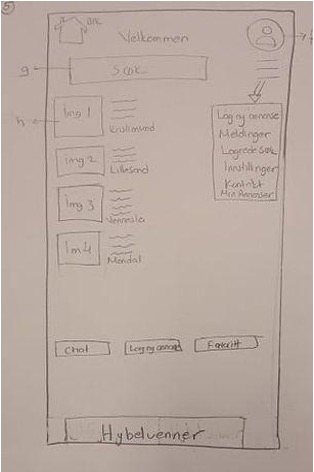 5
Velkommen
f
g
Søk
h
Img 1
Kristiansand
Img 2
Lillesand
Img 3
Vennesla
Im 4
Mandal
Lag ny annonse
Meldinger
Lagrede Søk
Innstillinger
Kontakt
Min Annonser
Chat
Lag ny annonse
Favoritt
Hybelvenner